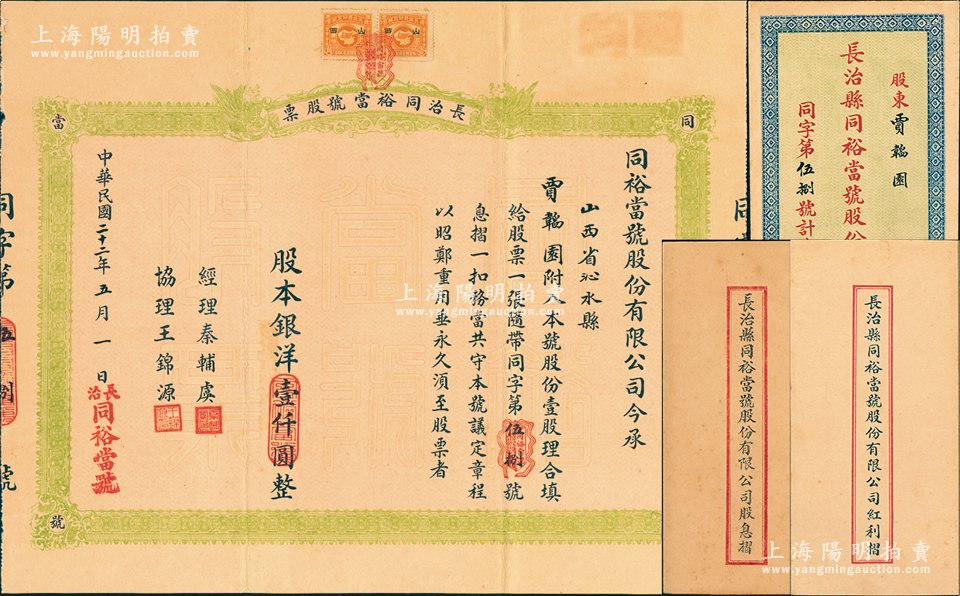 上海陽明拍賣
www.yangmingauction.com
山西
山西
長治同裕當號股票
同
裕
當
號
同裕當號股份有限公司今承
山西省沁水縣
賈韜園附入本號股份壹股理合填
給股票一張隨帶同字第伍捌號
息摺一扣務當共守本號議定章程
以昭鄭重用垂永久須至股票者
股本銀洋壹仟圓整
經理秦輔虞
協理王錦源
中華民國二十二年五月一日
長治
同裕當號
同字第伍捌號
股東賈韜園
長治縣同裕當號股份
同字第伍捌號計
長治縣同裕當號股份有限公司紅利摺
長治縣同裕當號股份有限公司股息摺
上海陽明拍賣
www.yangmingauction.com
上海陽明拍賣
www.yangmingauction.com
上海陽明拍賣
www.yangmingauction.com